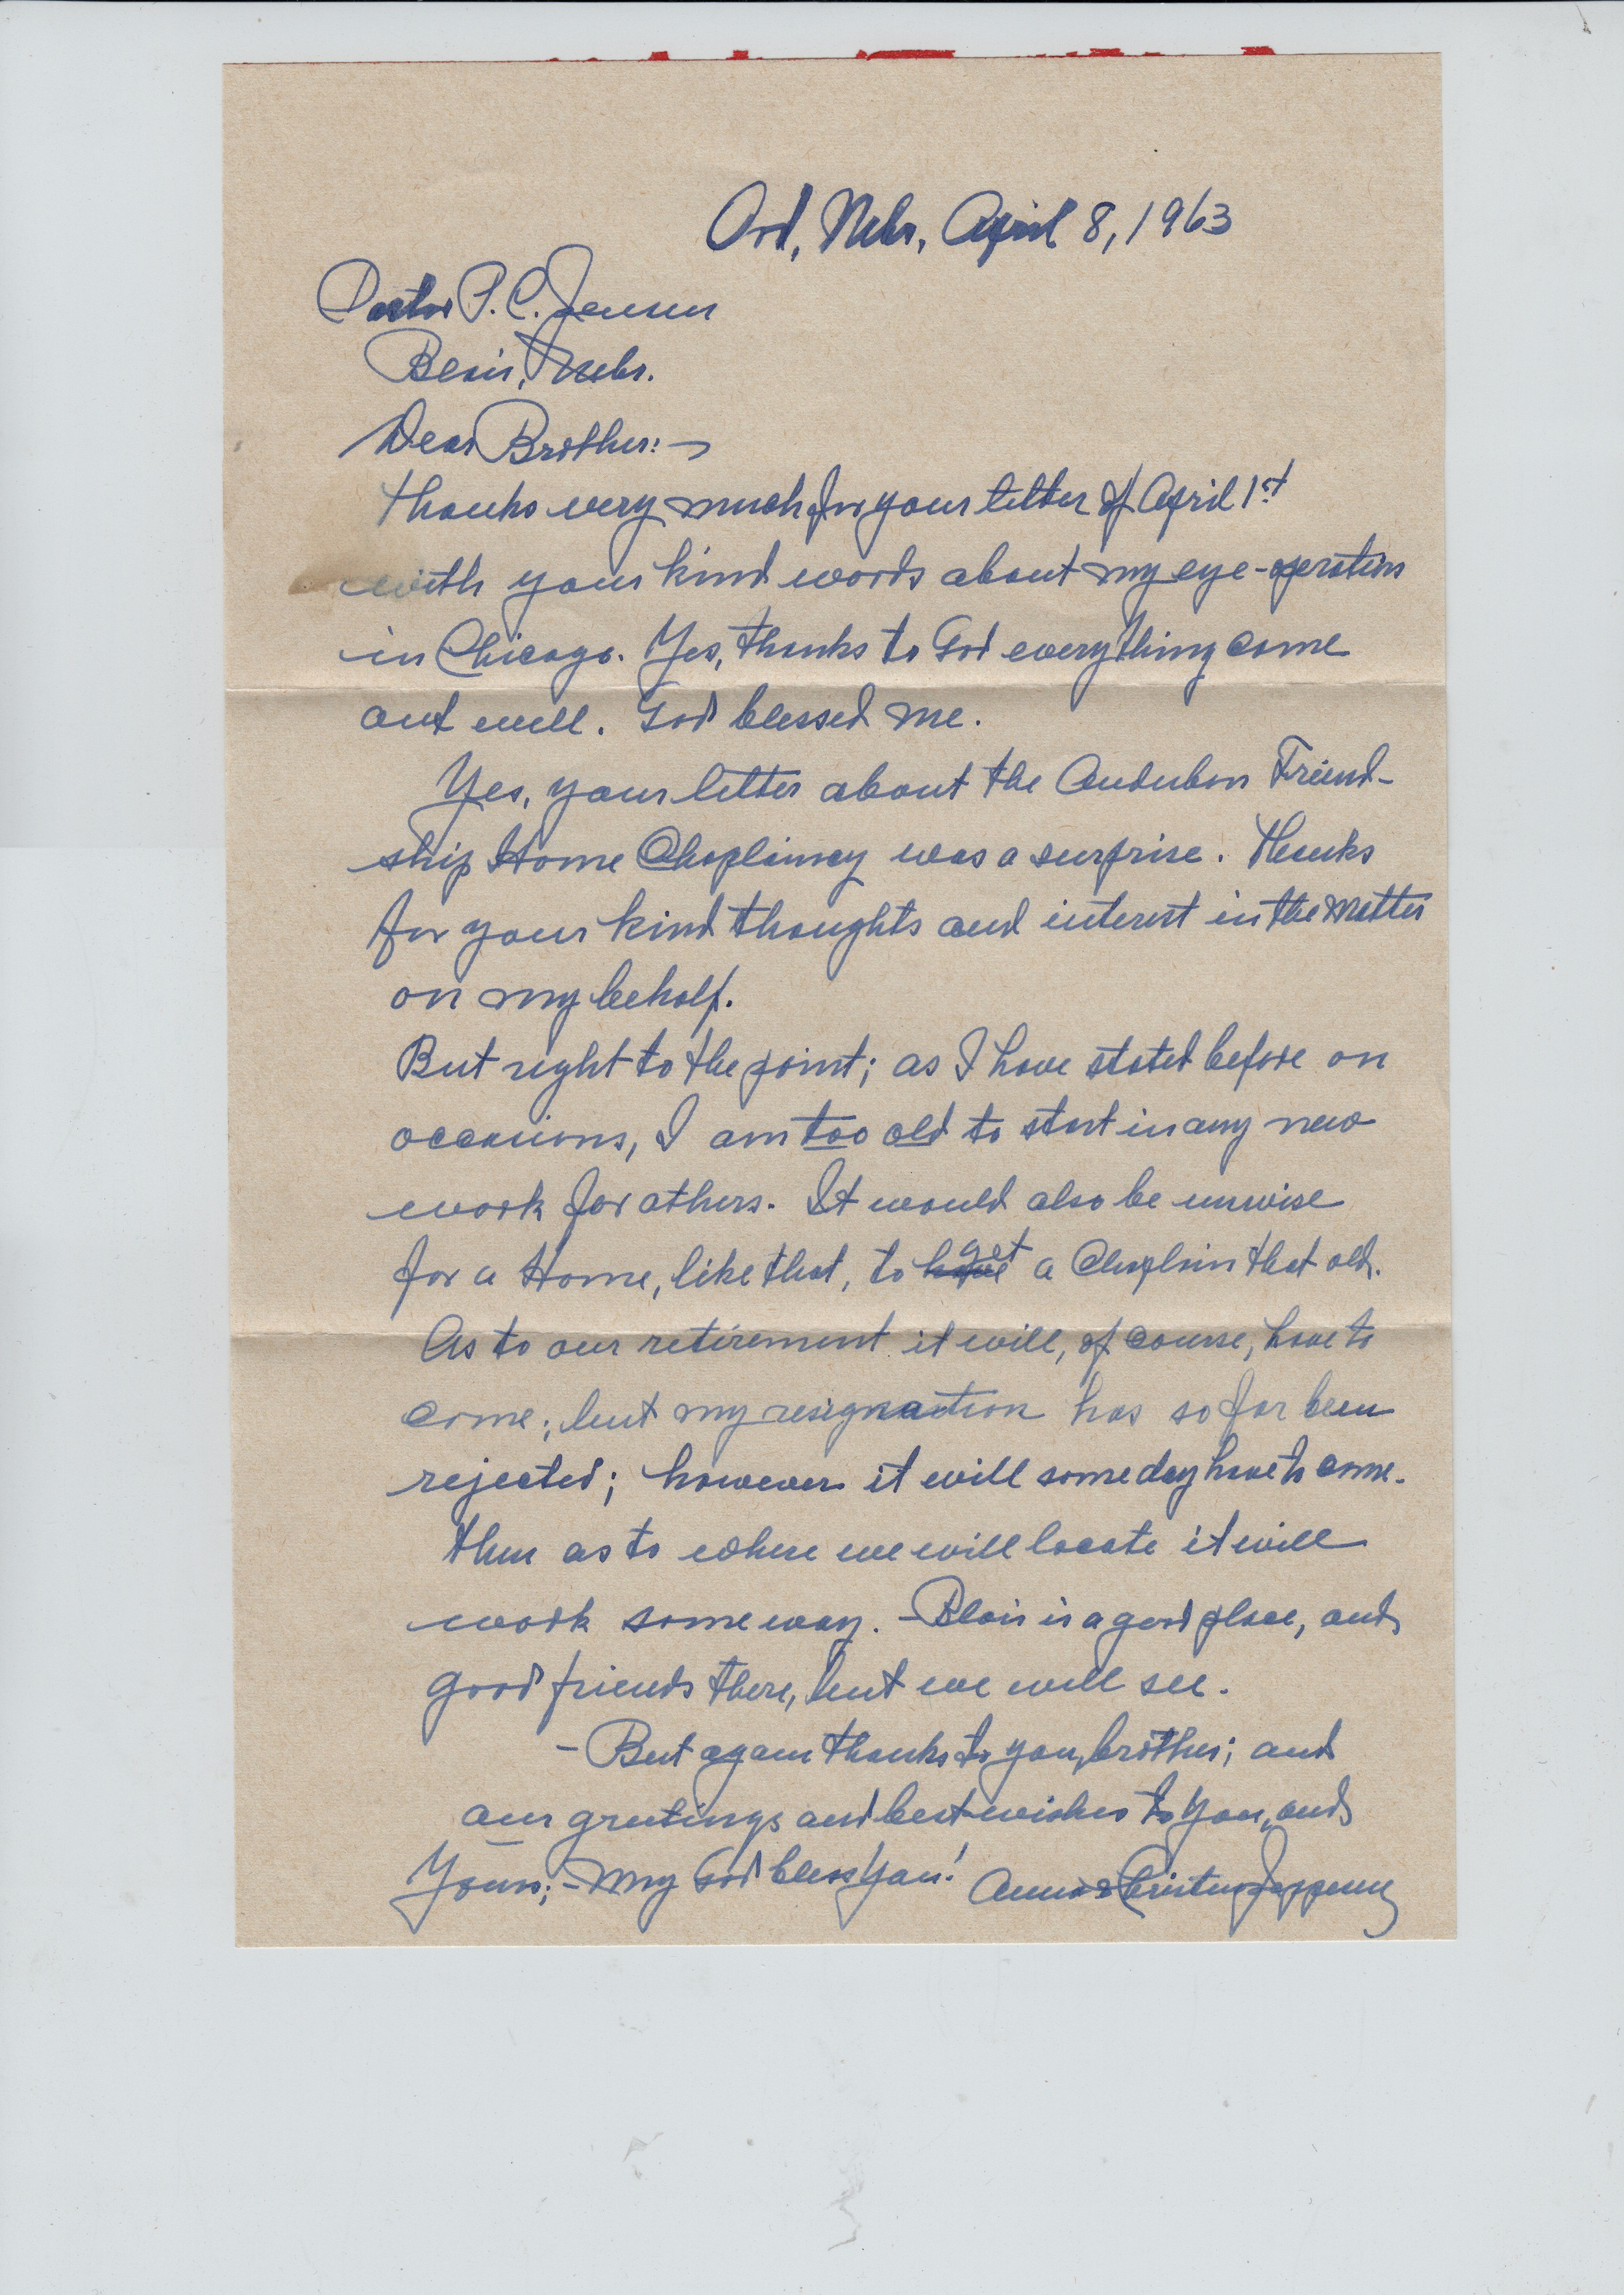 Ord, Nebr, April 8, 1963
Pastor P. C. Jensen
Blair, Nebr.
Dear Brother:-
Thanks very much for your letter of April 1st
with your kind words about my eye-operation
in Chicago. Yes, thanks to God everything come
out well. God blessed me.
Yes, your letter about the Audubon Friend-
ship Home Chaplaincy was a surprise. Thanks
for your kind thoughts and interest in the matter
on my behalf.
But right to the point; as I have stated before on
occasions, I am too old to start in any new
work for others. It would also be unwise
for a Home, like that, to have get a Chaplain that old.
As to our retirement it will, of course, have to
come; but my resignation has so far been
rejected; however it will some day have to come.
Then as to where we will locate it will
work some way. - Blair is a good place, and
good friends there, but we will see.
- But again thanks to you, brother; and
our greetings and best wishes to you, and
Yours; - May God bless You! Anna & Cristen Jeppesen